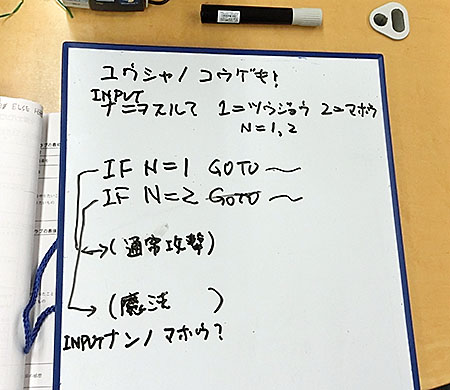 ユウシャノ コウゲキ!
INPUT
ナニヲスル? 1=ツウジョウ 2=マホウ
N=1,2
IF N=1 GOTO ～
IF N=2 GOTO ～
(通常攻撃)
(魔法 )
INPUTナンノ マホウ?